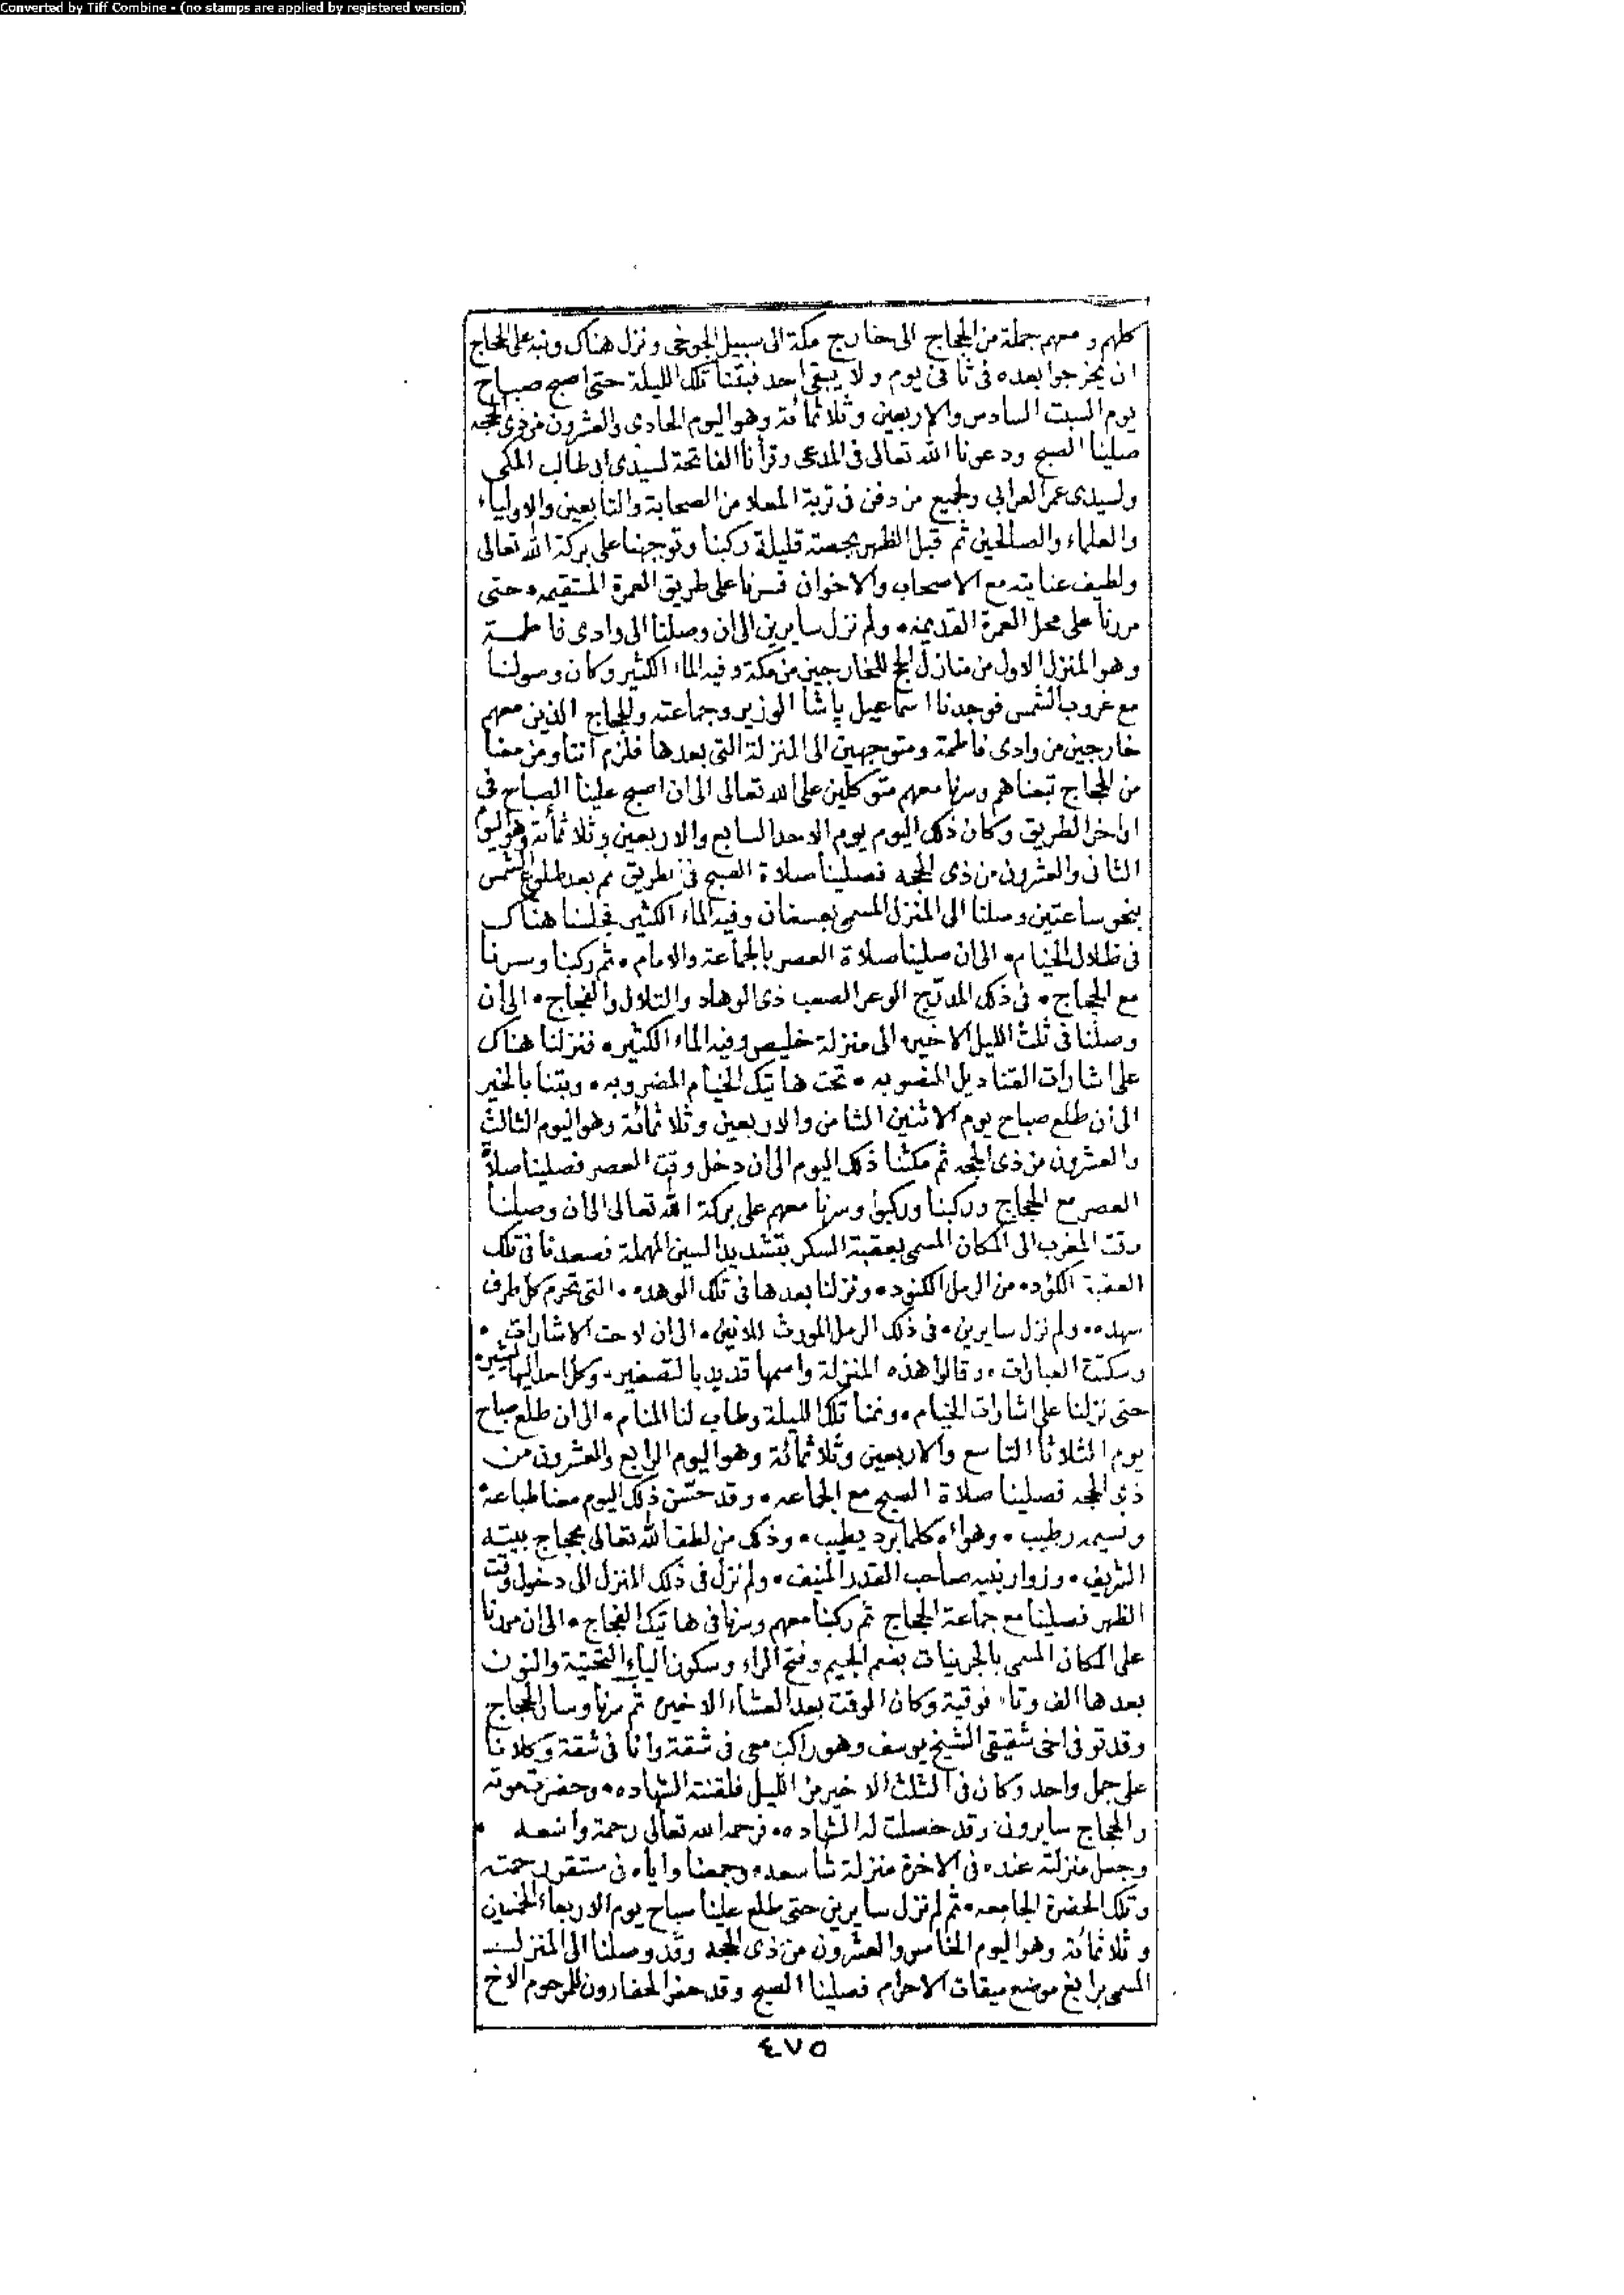 Converted by Tiff Combine - (no stamps are applied by registered version)
كلهم ومعهم جملة من الحجاج الى خارج مكة الى سبيل الجوخى ونزل هناك ونبه على الحجاج
ان يخرجوا بعده فى ثانى يوم ولا يبقى احد فبتنا تلك الليلة حتى اصبح صباح
يوم السبت السادس والاربعين وثلاثمائة وهو اليوم الحادى والعشرون من ذى الحجه
صلينا الصبح ودعونا الله تعالى فى المدعى وقرأنا الفاتحة لسيدى ابى طالب المكى
ولسيدى عمر العرابى ولجميع من دفن فى تربة المعلا من الصحابة والتابعين والاولياء
والعلماء والصالحين ثم قبل الظهر بحصة قليلة ركبنا وتوجهنا على بركة الله تعالى
ولطيف عنايته مع الاصحاب والاخوان فسرنا على طريق العمرة المستقيمه • حتى
مررنا على محل العمرة القديمه • ولم نزل سايرين الى ان وصلنا الى وادى فاطمة
وهو المنزل الاول من منازل الحج للخارجين من مكة وفيه الماء الكثير وكان وصولنا
مع غروب الشمس فوجدنا اسماعيل باشا الوزير وجماعته والحجاج الذين معهم
خارجين من وادى فاطمة ومتوجهين الى المنزلة التى بعدها فلزم اننا ومن معنا
من الحجاج تبعناهم وسرنا معهم متوكلين على الله تعالى الى ان اصبح علينا الصباح فى
اواخر الطريق وكان ذلك اليوم يوم الاحد السابع والاربعين وثلاثمائة وهو اليوم
الثانى والعشرون من ذى الحجه فصلينا صلاة الصبح فى الطريق ثم بعد طلوع الشمس
بنحو ساعتين وصلنا الى المنزل المسمى بعسفان وفيه الماء الكثير فجلسنا هناك
فى ظلال الخيام • الى ان صلينا صلاة العصر بالجماعة والامام • ثم ركبنا وسرنا
مع الحجاج • فى ذلك المدرّج الوعر الصعب ذى الوهاد والتلال والفجاج • الى ان
وصلنا فى ثلث الليل الاخير • الى منزلة خليص وفيه الماء الكثير • فنزلنا هناك
على اشارات القناديل المنصوبه • تحت هاتيك الخيام المضروبه • وبتنا بالخير
الى ان طلع صباح يوم الاثنين الثامن والاربعين وثلاثمائة وهو اليوم الثالث
والعشرون من ذى الحجه ثم مكثنا ذلك اليوم الى ان دخل وقت العصر فصلينا صلاة
العصر مع الحجاج وركبنا وركبوا وسرنا معهم على بركة الله تعالى الى ان وصلنا
وقت المغرب الى المكان المسمى بعقبة السكر بتشديد السين المهملة فصعدنا فى تلك
العقبة الكؤد • من الرمل الكنود • ونزلنا بعدها فى تلك الوهده • التى تحرم كل طرف
سهده • ولم نزل سايرين • فى ذلك الرمل المورث للانين • الى ان لاحت الاشارات •
وسكتت العبارات • وقالوا هذه المنزلة واسمها قديد بالتصغير • وكل احد اليها يشير •
حتى نزلنا على اشارات الخيام • ونمنا تلك الليلة وطاب لنا المنام • الى ان طلع صباح
يوم الثلاثا التاسع والاربعين وثلاثمائة وهو اليوم الرابع والعشرون من
ذى الحجه فصلينا صلاة الصبح مع الجماعه • وقد حسّن ذلك اليوم معنا طباعه
ونسيمه رطيب • وهواه كلما برد يطيب • وذلك من لطف الله تعالى بحجاج بيته
الشريف • وزوار نبيه صاحب القدر المنيف • ولم نزل فى ذلك المنزل الى دخول وقت
الظهر فصلينا مع جماعة الحجاج ثم ركبنا معهم وسرنا فى هاتيك الفجاج • الى ان مررنا
على المكان المسمى بالجرينات بضم الجيم وفتح الراء وسكون الياء التحتية والنون
بعدها الف وتاء فوقية وكان الوقت بعد العشاء الاخيره ثم سرنا وسار الحجاج
وقد توفى اخى شقيقى الشيخ يوسف وهو راكب معى فى شقة وانا فى شقة وكلانا
على جمل واحد وكان فى الثلث الاخير من الليل فلقنته الشهاده • وحضرت موته
والحجاج سايرون وقد حصلت له الشهاده • فرحمه الله تعالى رحمة واسعه •
وجعل منزلته عنده فى الاخرة منزلة شاسعه • وجمعنا واياه فى مستقر رحمته
وتلك الحضرة الجامعه • ثم لم نزل سايرين حتى طلع علينا صباح يوم الاربعاء الخمسين
وثلاثمائة وهو اليوم الخامس والعشرون من ذى الحجه وقد وصلنا الى المنزل
المسمى برابغ موضع ميقات الاحرام فصلينا الصبح وقد حفر الحفارون للمرحوم الاخ
٤٧٥